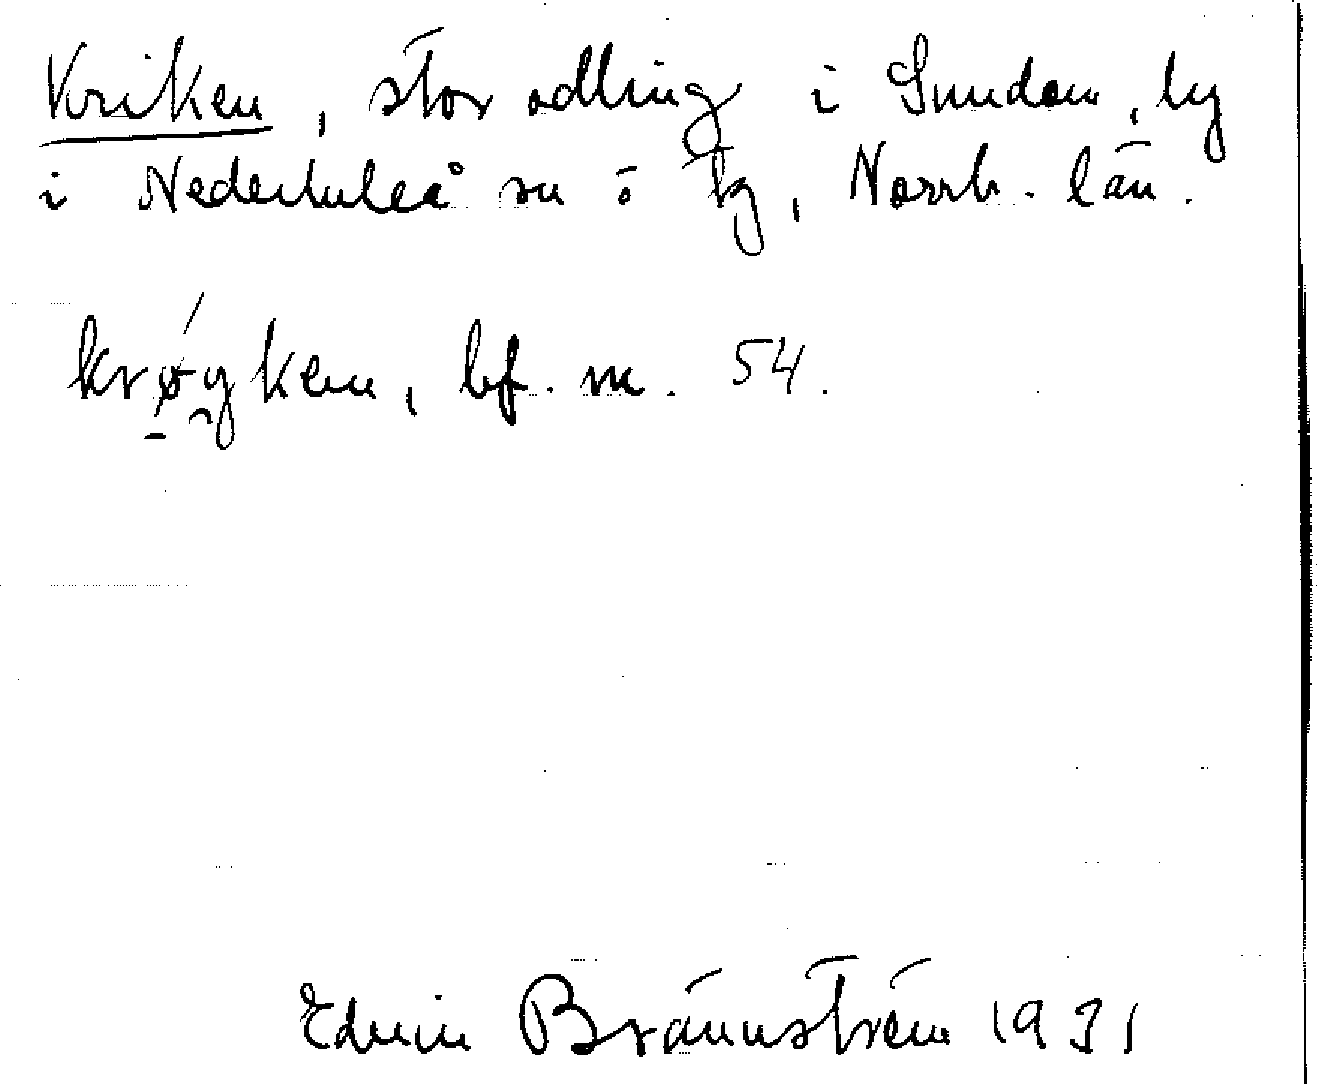 Kriken, stor odling i Sunden, by
i Nederluleå sn o tg, Norrb. län.
krøyken, bf. m. 54.
Edvin Brännström 1931